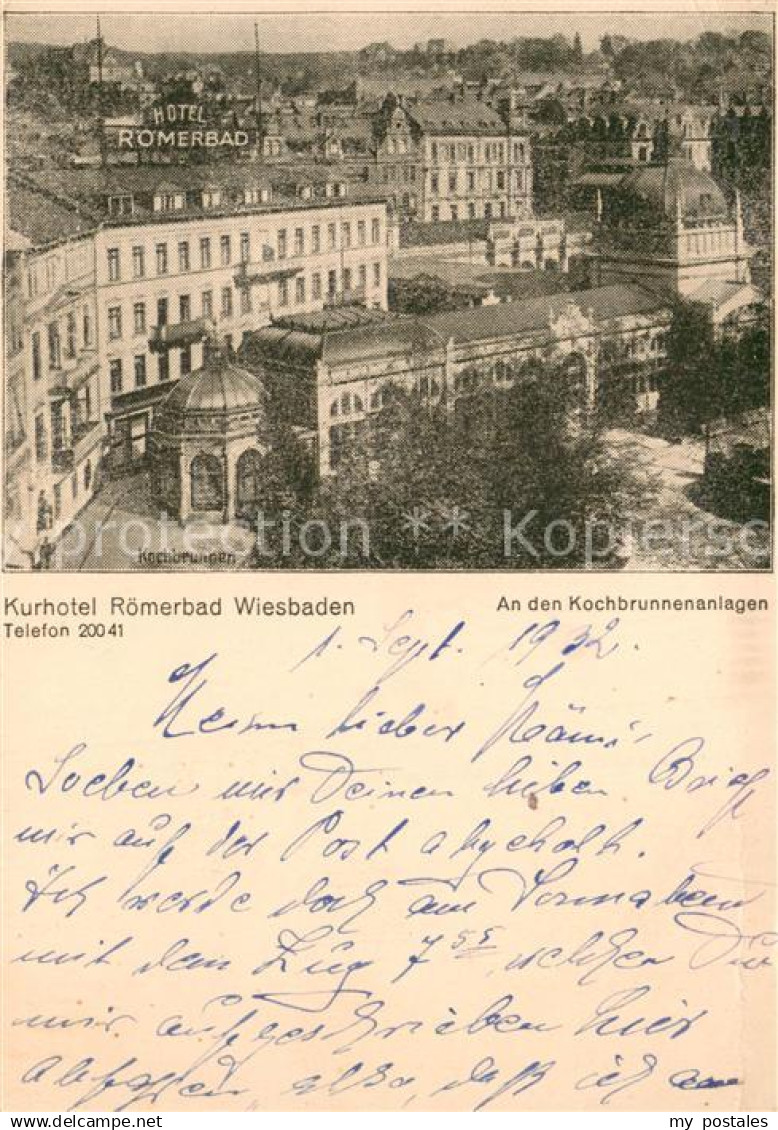 HOTEL
RÖMERBAD
Kochbrunnen
Kurhotel Römerbad Wiesbaden
An den Kochbrunnenanlagen
Telefon 20041
1. Sept. 1932.
Mein lieber
Soeben mir Deinen lieben Brief
mir auf der Post abgeholt.
Ich werde doch am Sonnabend
mit dem Zug 7 55, welchen Du
mir aufgeschrieben hier
abfahren, also, daß ich am
my postales